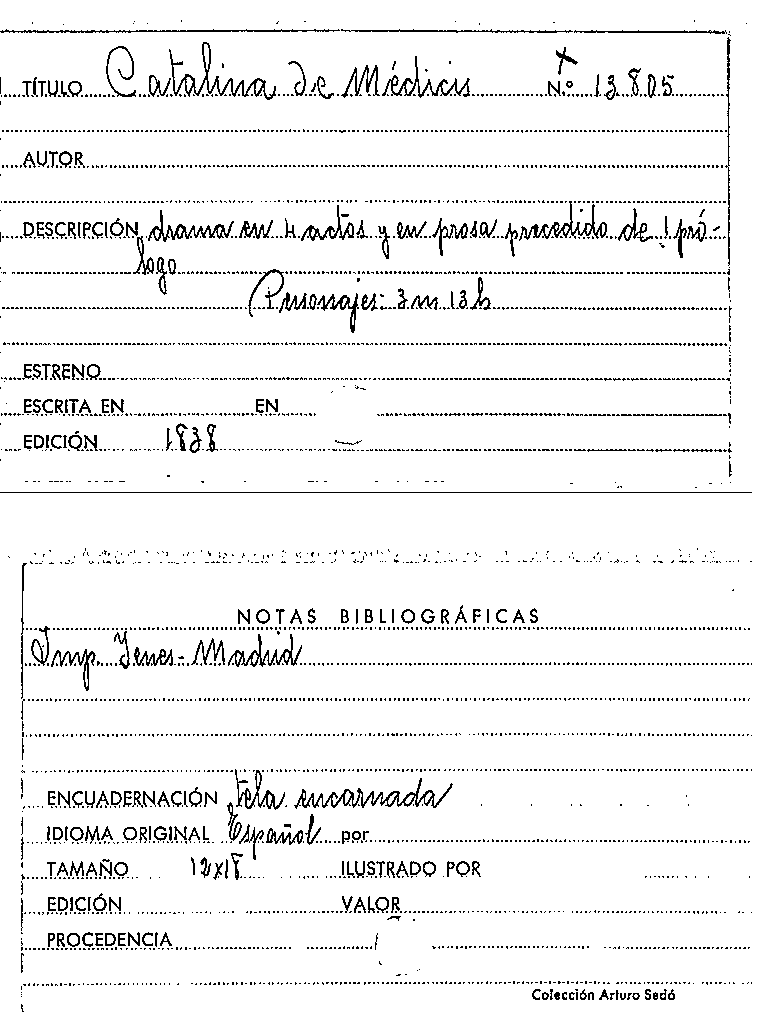 TÍTULO Catalina de Médicis Nº 13805
AUTOR
DESCRIPCIÓN drama en 4 actos y en prosa precedido de 1 pró-
logo
Personajes: 3 m 13 h
ESTRENO
ESCRITA EN EN
EDICIÓN 1838
NOTAS BIBLIOGRÁFICAS
Imp. Yenes - Madrid
ENCUADERNACIÓN tela encarnada
IDIOMA ORIGINAL Español por
TAMAÑO 12x18 ILUSTRADO POR
EDICIÓN VALOR
PROCEDENCIA
Colección Arturo Sedó